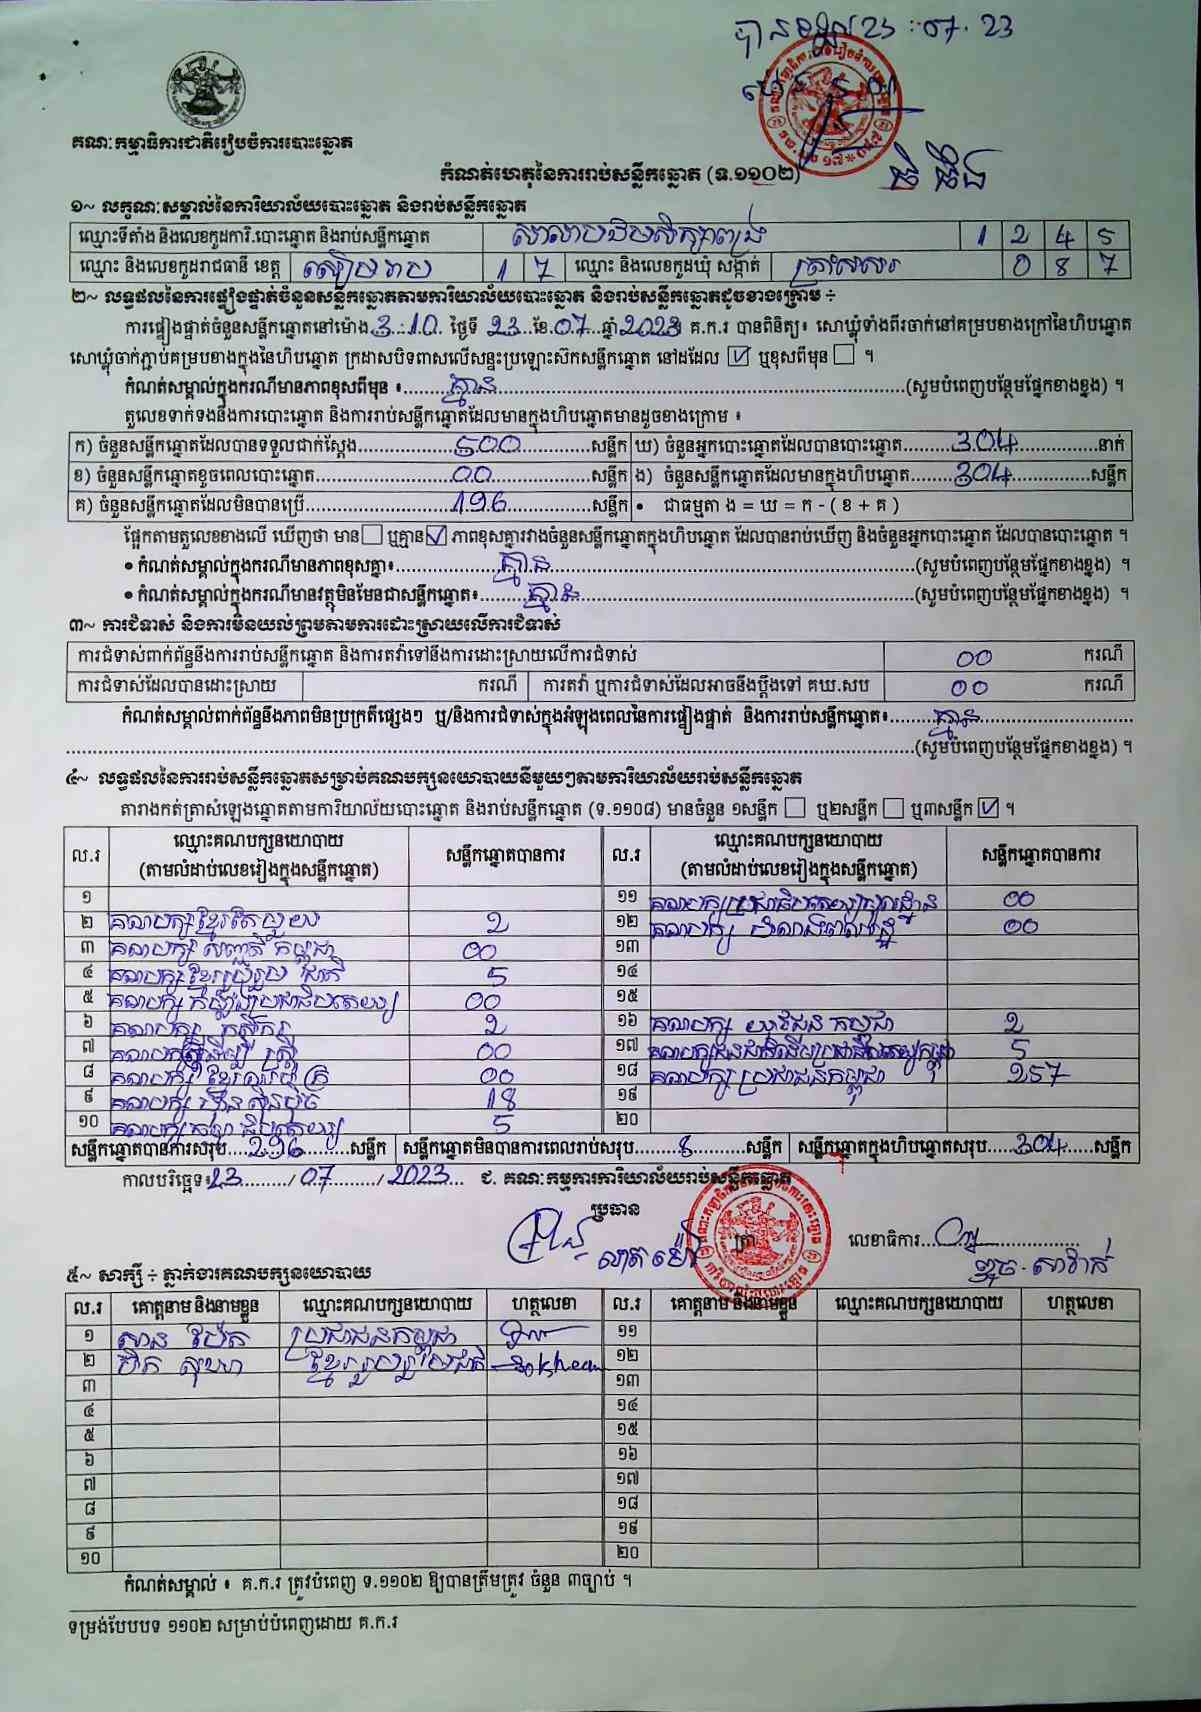 បានឃើញ 23 . 07 . 23
គណៈកម្មាធិការជាតិរៀបចំការបោះឆ្នោត
កំណត់ហេតុនៃការរាប់សន្លឹកឆ្នោត (ទ.១១០២)
១~ លក្ខណៈសម្គាល់នៃការិយាល័យបោះឆ្នោត និងរាប់សន្លឹកឆ្នោត
ឈ្មោះទីតាំង និងលេខកូដការិ.បោះឆ្នោត និងរាប់សន្លឹកឆ្នោត 1 2 4 5
ឈ្មោះ និងលេខកូដរាជធានី ខេត្ត សៀមរាប 1 7 ឈ្មោះ និងលេខកូដឃុំ សង្កាត់ 0 8 7
២~ លទ្ធផលនៃការផ្ទៀងផ្ទាត់ចំនួនសន្លឹកឆ្នោតតាមការិយាល័យបោះឆ្នោត និងរាប់សន្លឹកឆ្នោតដូចខាងក្រោម ÷
ការផ្ទៀងផ្ទាត់ចំនួនសន្លឹកឆ្នោតនៅម៉ោង 3:10 ថ្ងៃទី 23 ខែ 07 ឆ្នាំ 2023 គ.ក.រ បានពិនិត្យ៖ សោឃ្លុំទាំងពីរចាក់នៅគម្របខាងក្រៅនៃហិបឆ្នោត
សោឃ្លុំចាក់ភ្ជាប់គម្របខាងក្នុងនៃហិបឆ្នោត ក្រដាសបិទពាសលើសន្ទះប្រឡោះស៊កសន្លឹកឆ្នោត នៅដដែល ☑ ឬខុសពីមុន ☐ ។
កំណត់សម្គាល់ក្នុងករណីមានភាពខុសពីមុន ៖ គ្មាន (សូមបំពេញបន្ថែមផ្នែកខាងខ្នង) ។
តួលេខទាក់ទងនឹងការបោះឆ្នោត និងការរាប់សន្លឹកឆ្នោតដែលមានក្នុងហិបឆ្នោតមានដូចខាងក្រោម ៖
ក) ចំនួនសន្លឹកឆ្នោតដែលបានទទួលជាក់ស្តែង 500 សន្លឹក ឃ) ចំនួនអ្នកបោះឆ្នោតដែលបានបោះឆ្នោត 304 នាក់
ខ) ចំនួនសន្លឹកឆ្នោតខូចពេលបោះឆ្នោត 00 សន្លឹក ង) ចំនួនសន្លឹកឆ្នោតដែលមានក្នុងហិបឆ្នោត 304 សន្លឹក
គ) ចំនួនសន្លឹកឆ្នោតដែលមិនបានប្រើ 196 សន្លឹក • ជាធម្មតា ង = ឃ = ក - ( ខ + គ )
ផ្អែកតាមតួលេខខាងលើ ឃើញថា មាន ☐ ឬគ្មាន ☑ ភាពខុសគ្នារវាងចំនួនសន្លឹកឆ្នោតក្នុងហិបឆ្នោត ដែលបានរាប់ឃើញ និងចំនួនអ្នកបោះឆ្នោត ដែលបានបោះឆ្នោត ។
• កំណត់សម្គាល់ក្នុងករណីមានភាពខុសគ្នា៖ គ្មាន (សូមបំពេញបន្ថែមផ្នែកខាងខ្នង) ។
• កំណត់សម្គាល់ក្នុងករណីមានវត្ថុមិនមែនជាសន្លឹកឆ្នោត៖ គ្មាន (សូមបំពេញបន្ថែមផ្នែកខាងខ្នង) ។
៣~ ការជំទាស់ និងការមិនយល់ព្រមតាមការដោះស្រាយលើការជំទាស់
ការជំទាស់ពាក់ព័ន្ធនឹងការរាប់សន្លឹកឆ្នោត និងការតវ៉ាទៅនឹងការដោះស្រាយលើការជំទាស់ 00 ករណី
ការជំទាស់ដែលបានដោះស្រាយ ករណី ការតវ៉ា ឬការជំទាស់ដែលអាចនឹងប្តឹងទៅ គឃ.សប 00 ករណី
កំណត់សម្គាល់ពាក់ព័ន្ធនឹងភាពមិនប្រក្រតីផ្សេងៗ ឬ/និងការជំទាស់ក្នុងអំឡុងពេលនៃការផ្ទៀងផ្ទាត់ និងការរាប់សន្លឹកឆ្នោត៖ គ្មាន
(សូមបំពេញបន្ថែមផ្នែកខាងខ្នង) ។
៤~ លទ្ធផលនៃការរាប់សន្លឹកឆ្នោតសម្រាប់គណបក្សនយោបាយនីមួយៗតាមការិយាល័យរាប់សន្លឹកឆ្នោត
តារាងកត់ត្រាសំឡេងឆ្នោតតាមការិយាល័យបោះឆ្នោត និងរាប់សន្លឹកឆ្នោត (ទ.១១០៨) មានចំនួន ១សន្លឹក ☐ ឬ២សន្លឹក ☐ ឬ៣សន្លឹក ☑ ។
ល.រ ឈ្មោះគណបក្សនយោបាយ សន្លឹកឆ្នោតបានការ ល.រ ឈ្មោះគណបក្សនយោបាយ សន្លឹកឆ្នោតបានការ
(តាមលំដាប់លេខរៀងក្នុងសន្លឹកឆ្នោត) (តាមលំដាប់លេខរៀងក្នុងសន្លឹកឆ្នោត)
១ ១១ គណបក្សប្រជាធិបតេយ្យមូលដ្ឋាន 00
២ គណបក្សខ្មែរតែមួយ 2 ១២ គណបក្ស 00
៣ គណបក្ស បញ្ញតិ កម្ពុជា 00 ១៣
៤ គណបក្សខ្មែររួបរួមជាតិ 5 ១៤
៥ គណបក្ស កំឡាំងប្រជាធិបតេយ្យ 00 ១៥
៦ គណបក្ស កសិករ 2 ១៦ គណបក្ស យុវជន កម្ពុជា 2
៧ គណបក្សដើម្បី ស្ត្រី 00 ១៧ គណបក្សជនជាតិដើមប្រជាធិបតេយ្យកម្ពុជា 5
៨ គណបក្ស ខ្មែរ 00 ១៨ គណបក្ស ប្រជាជនកម្ពុជា 257
៩ គណបក្ស ហ្វ៊ុនស៊ិនប៉ិច 18 ១៩
១០ គណបក្ស 5 ២០
សន្លឹកឆ្នោតបានការសរុប 296 សន្លឹក សន្លឹកឆ្នោតមិនបានការពេលរាប់សរុប 8 សន្លឹក សន្លឹកឆ្នោតក្នុងហិបឆ្នោតសរុប 304 សន្លឹក
កាលបរិច្ឆេទ៖ 23 / 07 / 2023 ជ. គណៈកម្មការការិយាល័យរាប់សន្លឹកឆ្នោត
ប្រធាន
ត្រា លេខាធិការ
៥~ សាក្សី ÷ ភ្នាក់ងារគណបក្សនយោបាយ
ល.រ គោត្តនាម និងនាមខ្លួន ឈ្មោះគណបក្សនយោបាយ ហត្ថលេខា ល.រ គោត្តនាម និងនាមខ្លួន ឈ្មោះគណបក្សនយោបាយ ហត្ថលេខា
១ ប្រជាជនកម្ពុជា ១១
២ ខ្មែររួបរួមជាតិ ១២
៣ ១៣
៤ ១៤
៥ ១៥
៦ ១៦
៧ ១៧
៨ ១៨
៩ ១៩
១០ ២០
កំណត់សម្គាល់ ៖ គ.ក.រ ត្រូវបំពេញ ទ.១១០២ ឱ្យបានត្រឹមត្រូវ ចំនួន ៣ច្បាប់ ។
ទម្រង់បែបបទ ១១០២ សម្រាប់បំពេញដោយ គ.ក.រ